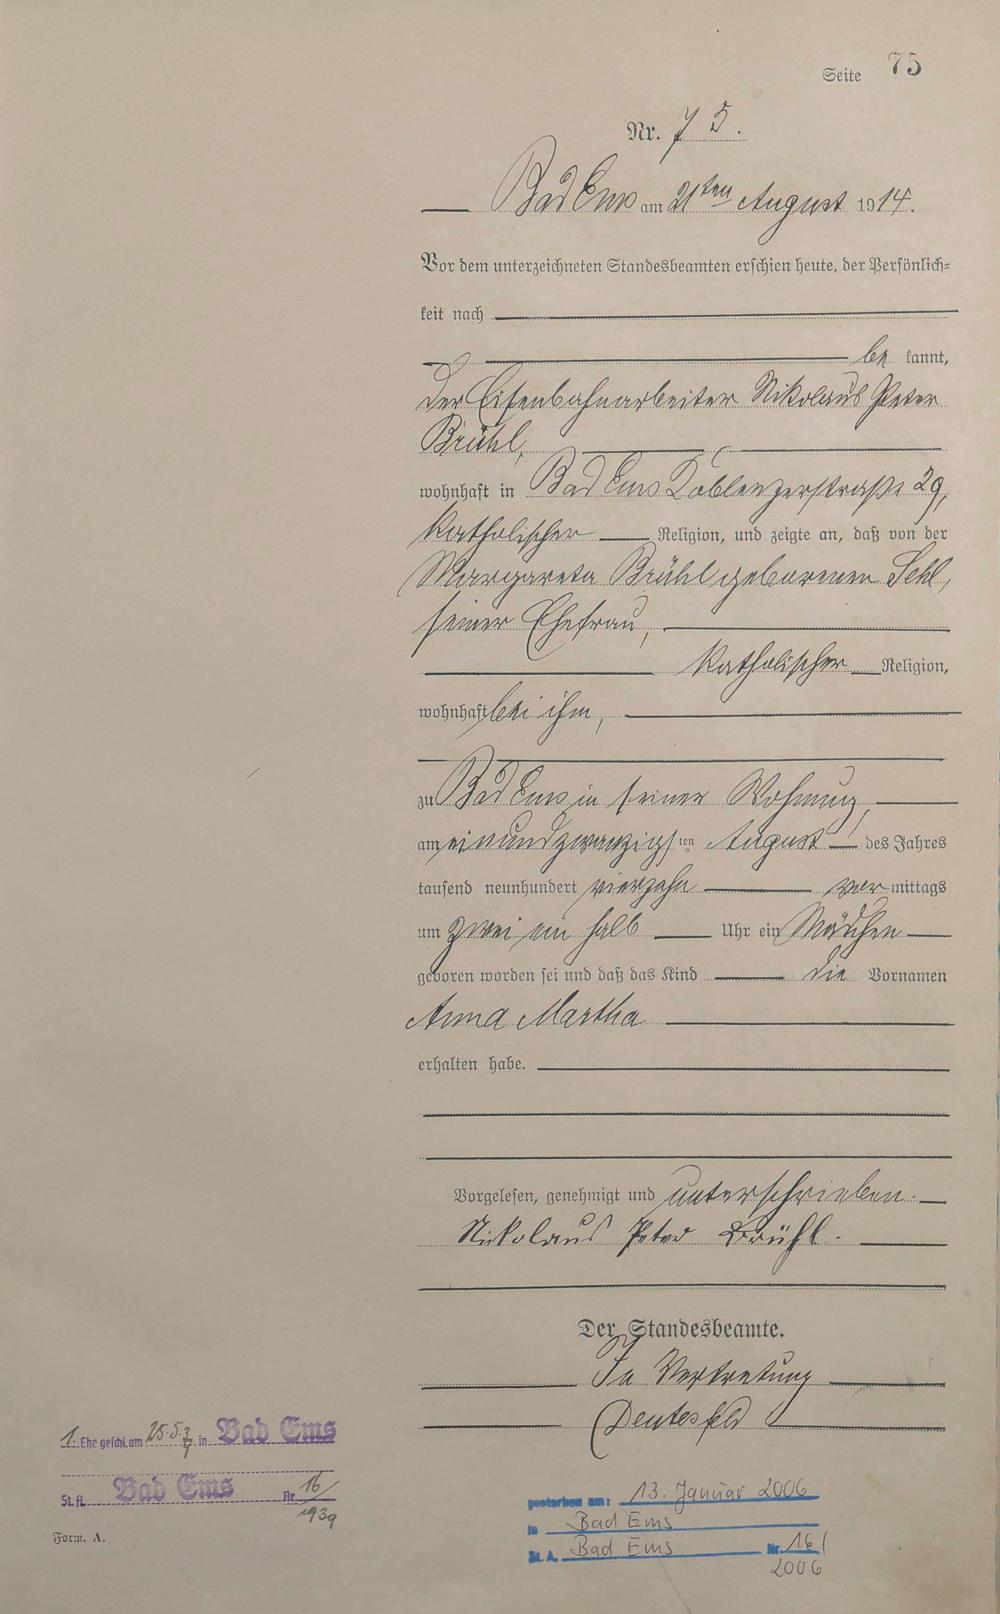 Seite 75
Nr. 75.
Bad Ems am 21ten August 1914.
Vor dem unterzeichneten Standesbeamten erschien heute, der Persönlich=
keit nach
be kannt,
der Eisenbahnarbeiter Nikolaus Peter
Brühl,
wohnhaft in Bad Ems Coblenzerstraße 29,
katholischer Religion, und zeigte an, daß von der
Margareta Brühl geborenen Sehl,
seiner Ehefrau,
katholischer Religion,
wohnhaft bei ihm,
zu Bad Ems in seiner Wohnung,
am einundzwanzigsten August des Jahres
tausend neunhundert vierzehn vormittags
um zwei ein halb Uhr ein Mädchen
geboren worden sei und daß das Kind die Vornamen
Anna Martha
erhalten habe.
Vorgelesen, genehmigt und unterschrieben.
Nikolaus Peter Brühl.
Der Standesbeamte.
In Vertretung
Deutesfeld
1. Ehe geschl. am 25.5. in Bad Ems
St. A. Bad Ems Nr. 16/
1939
Form. A.
gestorben am: 13. Januar 2006
in Bad Ems
St. A. Bad Ems Nr. 16/
2006